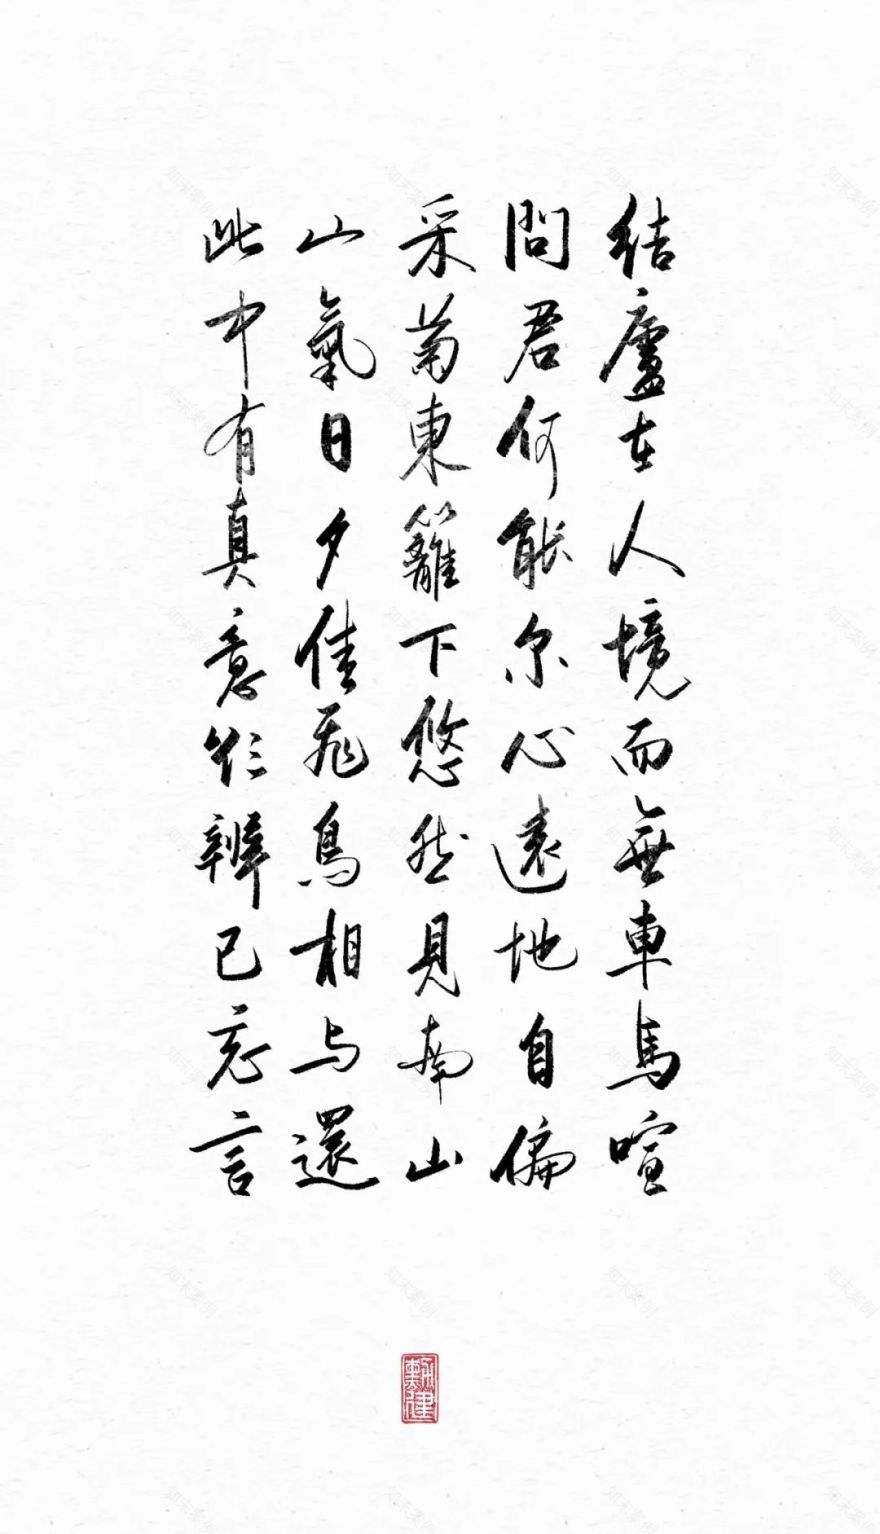 結廬在人境而無車馬喧
問君何能尔心遠地自偏
采菊東籬下悠然見南山
山氣日夕佳飛鳥相与還
此中有真意欲辨已忘言
知末案例